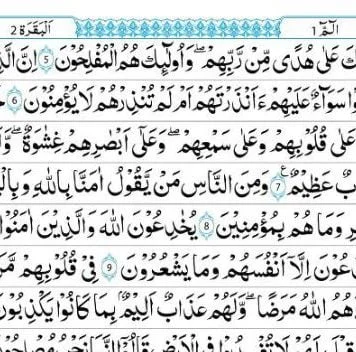 الٓمّٓ ١ اَلْبَقَرَة ٢
عَلٰى هُدًى مِّنْ رَّبِّهِمْ ۖ وَاُولٰٓئِكَ هُمُ الْمُفْلِحُوْنَ ٥ اِنَّ
سَوَآءٌ عَلَيْهِمْ ءَاَنْذَرْتَهُمْ اَمْ لَمْ تُنْذِرْهُمْ لَا يُؤْمِنُوْنَ ٦
عَلٰى قُلُوْبِهِمْ وَعَلٰى سَمْعِهِمْ ۖ وَعَلٰٓى اَبْصَارِهِمْ غِشَاوَةٌ ۖ
عَظِيْمٌ ٧ ع وَمِنَ النَّاسِ مَنْ يَّقُوْلُ اٰمَنَّا بِاللّٰهِ
وَمَا هُمْ بِمُؤْمِنِيْنَ ٨ يُخٰدِعُوْنَ اللّٰهَ وَالَّذِيْنَ اٰمَنُوْا
اِلَّآ اَنْفُسَهُمْ وَمَا يَشْعُرُوْنَ ٩ فِيْ قُلُوْبِهِمْ
اللّٰهُ مَرَضًا ۚ وَلَهُمْ عَذَابٌ اَلِيْمٌۢ بِمَا كَانُوْا يَكْذِبُوْنَ